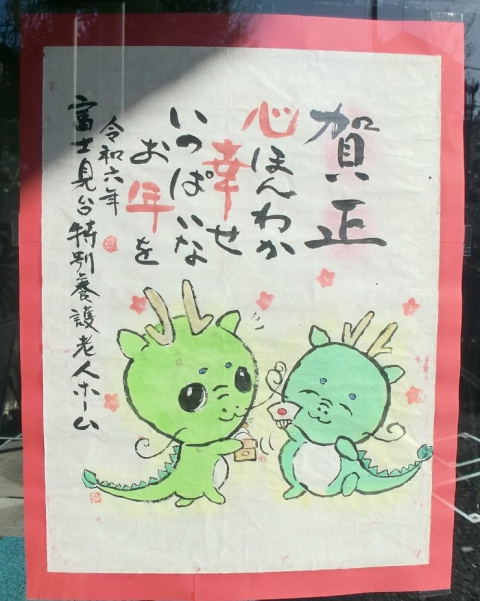 賀正
心ほんわか
幸せ
いっぱいな
お年を
令和六年
富士見台特別養護老人ホーム